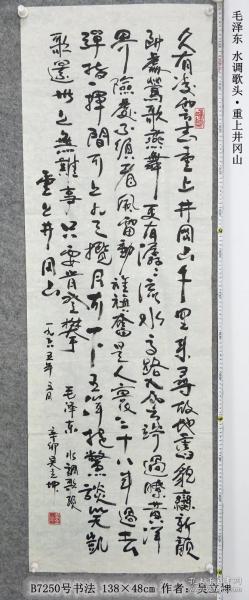 毛泽东 水调歌头·重上井冈山
久有凌云志重上井冈山千里来寻故地旧貌变新颜
到处莺歌燕舞更有潺潺流水高路入云端过了黄洋
界险处不须看风雷动旌旗奋是人寰三十八年过去
弹指一挥间可上九天揽月可下五洋捉鳖谈笑凯
歌还世上无难事只要肯登攀
毛泽东 水调歌头
重上井冈山 一九六五年五月
辛卯吴立坤
B7250号书法 138×48cm 作者:吴立坤